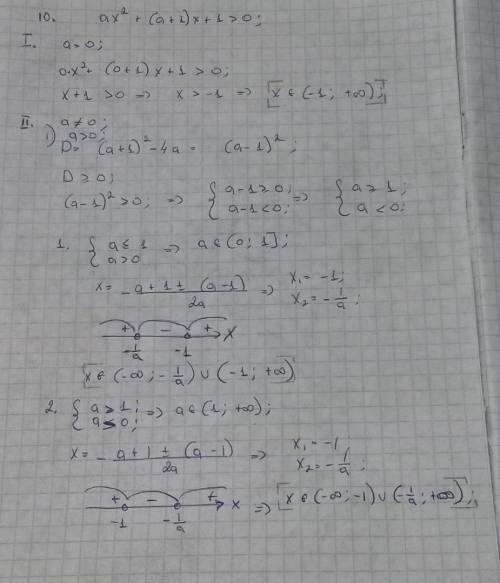 10. ax² + (a+1)x+1>0;
I. a=0;
0·x²+ (0+1)x+1>0;
x+1>0 => x>-1 => [x∈(-1; +∞)];
II. a≠0;
1) a>0;
D= (a+1)²-4a = (a-1)²;
D≥0;
(a-1)²>0; => { a-1≥0; a-1<0; => { a≥1; a<0;
1. { a≤1 a>0 => a∈(0; 1];
x= -a+1±(a-1) / 2a => x₁=-1; x₂=-1/a;
+ - + x
-1/a -1
[x∈(-∞; -1/a)∪(-1; +∞)]
2. { a>1; a≤0; => a∈(1; +∞);
x= -a+1±(a-1) / 2a => x₁=-1; x₂=-1/a;
+ - + x => [x∈(-∞; -1)∪(-1/a; +∞)];
-1 -1/a